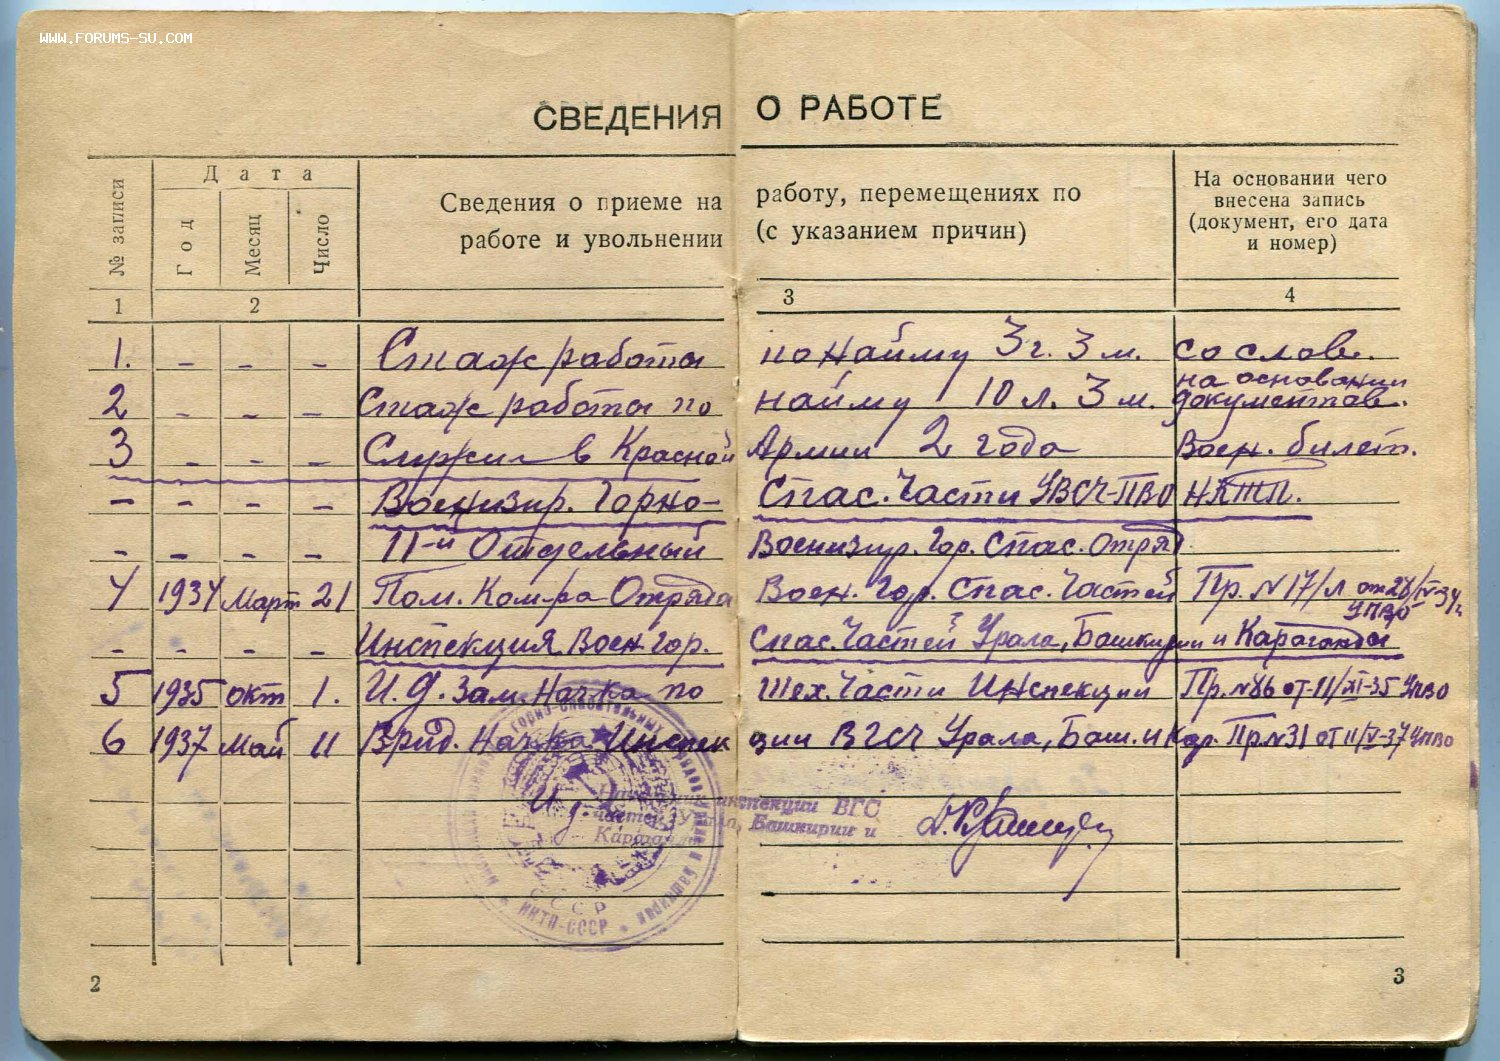 WWW.FORUMS-SU.COM
СВЕДЕНИЯ О РАБОТЕ
№ записи
Дата
Год
Месяц
Число
Сведения о приеме на работу, перемещениях по
работе и увольнении (с указанием причин)
На основании чего
внесена запись
(документ, его дата
и номер)
1 2 3 4
1. – – – Стаж работы по найму 3 г. 3 м. со слов.
2 – – – Стаж работы по найму 10 л. 3 м. на основании документов.
3 – – – Служил в Красной Армии 2 года Воен. билет.
– – – – Военизир. Горно- Спас. Части УВСЧ-ПВО НКТП.
– – – – 11-й Отдельный Военизир. Гор. Спас. Отряд
4 1934 Март 21 Пом. Ком-ра Отряда Воен. Гор. Спас. Частей Пр. N 17/л от 28/IV-34 г. УПВО
– – – – Инспекция Воен. гор. Спас. Частей Урала, Башкирии и Караганды
5 1935 окт 1. И. д. Зам. Нач-ка по Тех. Части Инспекции Пр. N 86 от 11/XI-35 УПВО
6 1937 Май 11 Врид. Нач-ка Инспекции ВГСЧ Урала, Баш. и Кар. Пр. N 31 от 11/V-37 УПВО
И. д.
инспекции ВГС
частей Урала, Башкирии и
Караганды
СССР
НКТП-СССР
2
3